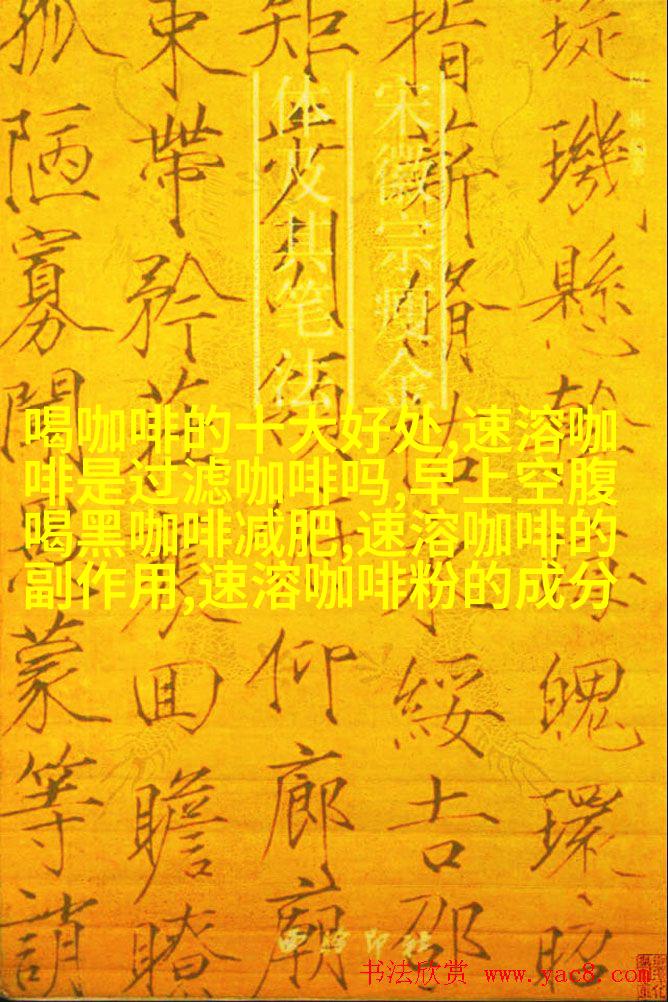 璇璣懸斡魄環照
指薪脩祜永綏吉邵
矩步引領仰廊廟
束帶矜莊回瞻眺
孤陋寡聞愚蒙等誚
宋徽宗瘦金
体及其笔法
喝咖啡的十大好处,速溶咖
啡是过滤咖啡吗,早上空腹
喝黑咖啡减肥,速溶咖啡的
副作用,速溶咖啡粉的成分
西泠印社
书法欣赏 www.yac8.com